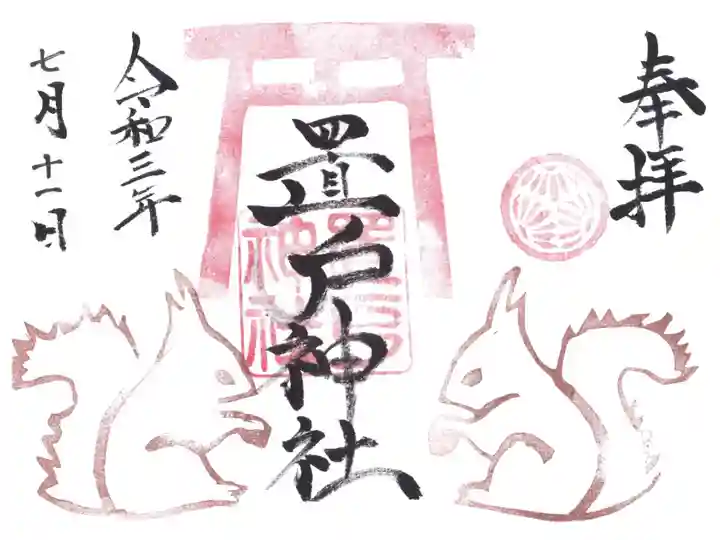 奉拝
置戸神社
置戸神社
令和三年
七月十一日